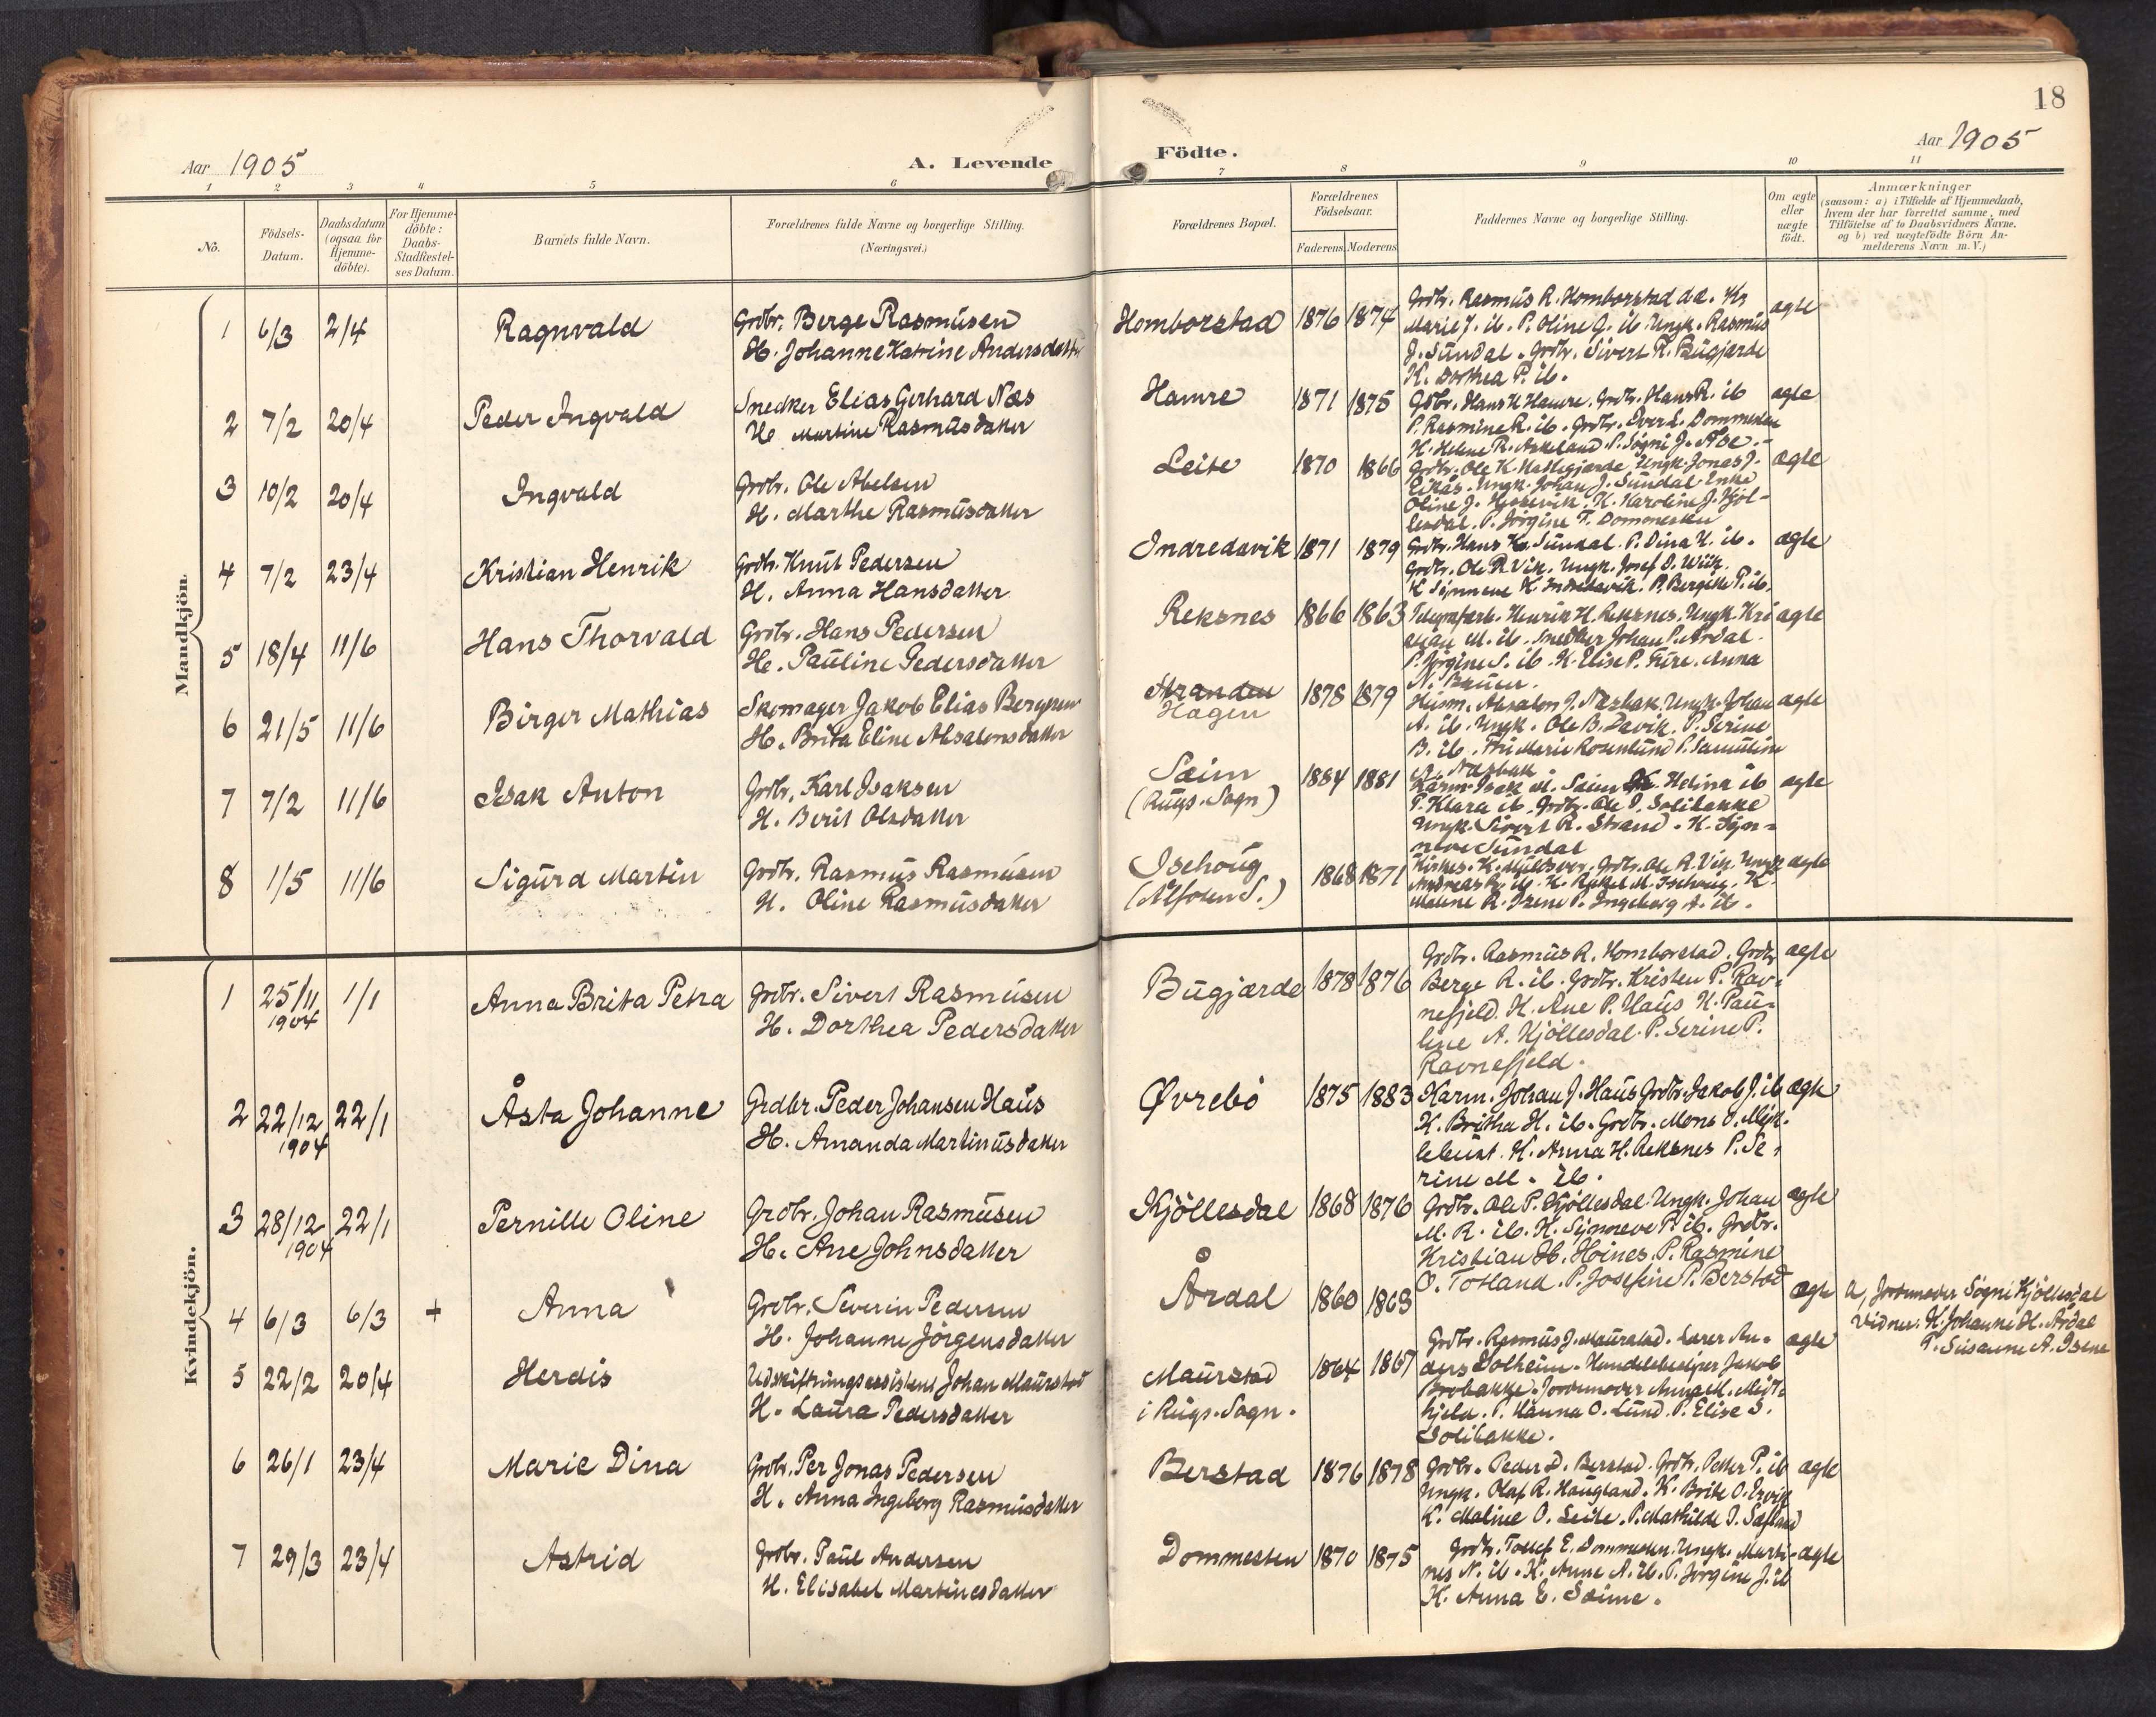 18
Aar 1905
A. Levende
Födte.
Aar 1905
1 2 3 4 5 6 7 8 9 10 11
No.
Födsels-
Datum.
Daabsdatum
(ogsaa for
Hjemme-
döbte).
For Hjemme-
döbte:
Daabs-
Stadfestel-
ses Datum.
Barnets fulde Navn.
Forældrenes fulde Navne og borgerlige Stilling.
(Næringsvei.)
Forældrenes Bopæl.
Forældrenes
Födselsaar.
Faderens. Moderens.
Faddernes Navne og borgerlige Stilling.
Om ægte
eller
uægte
födt.
Anmærkninger
(saasom: a) i Tilfælde af Hjemmedaab,
hvem der har forrettet samme, med
Tilföielse af to Daabsvidners Navne,
og b) ved uægtefödte Börn An-
melderens Navn m. V.)
Mandkjön.
1 6/3 2/4 Ragnvald
Grdbr. Berge Rasmusen
H. Johanne Katrine Andersdatter
Homborstad 1876 1874
Grdbr. Rasmus R. Homborstad
Marie J. ib. P. Oline J. ib. Ungk. Rasmus
J. Sundal. Grdbr. Sivert R. Bugjærde
K. Dorthea P. ib.
ægte
2 7/2 20/4 Peder Ingvald
Snedker Elias Gerhard Næs
H. Martine Rasmusdatter
Hamre 1871 1875
Gdbr. Hans H. Hamre. Grdbr. Hans R. ib
P. Rasmine R. ib. Grdbr. Iver L. Dommesten
H. Helene R. Askeland. P. Sögni J.
ægte
3 10/2 20/4 Ingvald
Grdbr. Ole Abelsen
H. Marthe Rasmusdatter
Leite 1870 1866
Grdbr. Ole K. Ungk. Jonas J.
Eikås. Ungk. Johan J. Sundal. Enke
Oline J. K. Karoline J. Kjöl-
lesdal. P. Jörgine T. Dommesten
ægte
4 7/2 23/4 Kristian Henrik
Grdbr. Knut Pedersen
H. Anna Hansdatter
Indredavik 1871 1879
Grdbr. Hans K. Sundal. P. Dina K. ib.
Grdbr. Ole R. Vik. Ungk. Josef D. Wiik.
K. Synneve K. Indredavik. P. Bergitte P. ib.
ægte
5 18/4 11/6 Hans Thorvald
Grdbr. Hans Pedersen
H. Pauline Pedersdatter
Reksnes 1866 1863
Telegrafarb. Henrik H. Reksnes. Ungk. Kri
stian M. ib. Snedker Johan P. Årdal.
P. Jörgine S. ib. K. Elise P. Fure. Anna
N.
ægte
6 21/5 11/6 Birger Mathias
Skomager Jakob Elias Bergesen
H. Brita Eline Absalonsdatter
Stranden
Hagen
1878 1879
Husm. Absalon J. Næsbak. Ungk. Johan
A. ib. Ungk. Ole B. Davik. P. Serine
B. ib. Marie Rosenlund. P. Samuline
A. Næsbak
ægte
7 7/2 11/6 Isak Anton
Grdbr. Karl Isaksen
H. Berit Olsdatter
Sæim
(Rugs. Sogn)
1884 1881
Kårm. Isak M. Sæim K. Helina ib
P. Klara ib. Grdbr. Ole P. Solibakke
Ungk. Sivert R. Strand. K. Syn-
növe Sundal
ægte
8 1/5 11/6 Sigurd Martin
Grdbr. Rasmus Rasmusen
H. Oline Rasmusdatter
Isehoug
(Ålfoten S.)
1868 1871
Kirkes. K. Myklebust. Grdbr. Ole R. Vik. Ungk
Andreas R. ib. K. Rakel M. Isehoug. K.
Malene R. Isene P. Ingeborg A. ib.
ægte
Kvindekjön.
1 25/11 1904 1/1 Anna Brita Petra
Grdbr. Sivert Rasmusen
H. Dorthea Pedersdatter
Bugjærde 1878 1876
Grdbr. Rasmus R. Homborstad. Grdbr
Berge R. ib. Grdbr. Kristen P. Rav-
nefjeld. K. Ane P. Haus K. Pau-
line A. Kjöllesdal. P. Serine P.
Ravnefjeld.
ægte
2 22/12 1904 22/1 Åsta Johanne
Grdbr. Peder Johansen Haus
H. Amanda Martinusdatter
Øvrebö 1875 1883
Karm. Johan J. Haus Grdbr. Jakob J. ib
K. Britha H. ib. Grdbr. Mons O. Myk-
lebust. K. Anna H. Reksnes P. Se-
rine M. ib.
ægte
3 28/12 1904 22/1 Pernille Oline
Grdbr. Johan Rasmusen
H. Ane Johnsdatter
Kjöllesdal 1868 1876
Grdbr. Ole P. Kjöllesdal. Ungk. Johan
M. R. ib. K. Synneve P. ib. Grdbr.
Kristian H. Hoines. P. Rasmine
O. Totland. P. Josefine P. Berstad
ægte
4 6/3 6/3 + Anna
Grdbr. Severin Pedersen
H. Johanne Jörgensdatter
Årdal 1860 1863
ægte
a, Jordemoder Sögni Kjöllesdal
Vidner. K. Johanne H. Årdal
P. Susanne A. Isene
5 22/2 20/4 Herdis
Udskiftningsassistent Johan Maurstad
H. Laura Pedersdatter
Maurstad
i Rugs. Sogn.
1864 1867
Grdbr. Rasmus J. Maurstad. Lærer An-
ders Solheim. Handelsbetjen Jakob
Brobakke. Jordemoder Anna M. Midt-
hjeld. P. Hanna O. Lund. P. Elise S.
Solibakke.
ægte
6 26/1 23/4 Marie Dina
Grdbr. Per Jonas Pedersen
H. Anna Ingeborg Rasmusdatter
Berstad 1876 1878
Grdbr. Peder D. Berstad. Grdbr. Petter P. ib
Ungk. Olaf R. Haugland. K. Brite O. Ervik
K. Maline O. Leite. P. Mathilde I. Sæfland
ægte
7 29/3 23/4 Astrid
Grdbr. Paul Andersen
H. Elisabet Martinesdatter
Dommesten 1870 1875
Grdbr. Tollef E. Dommesten. Ungk. Marti-
nes N. ib. K. Anne A. ib. P. Jörgine J. ib
K. Anna E. Sæime.
ægte